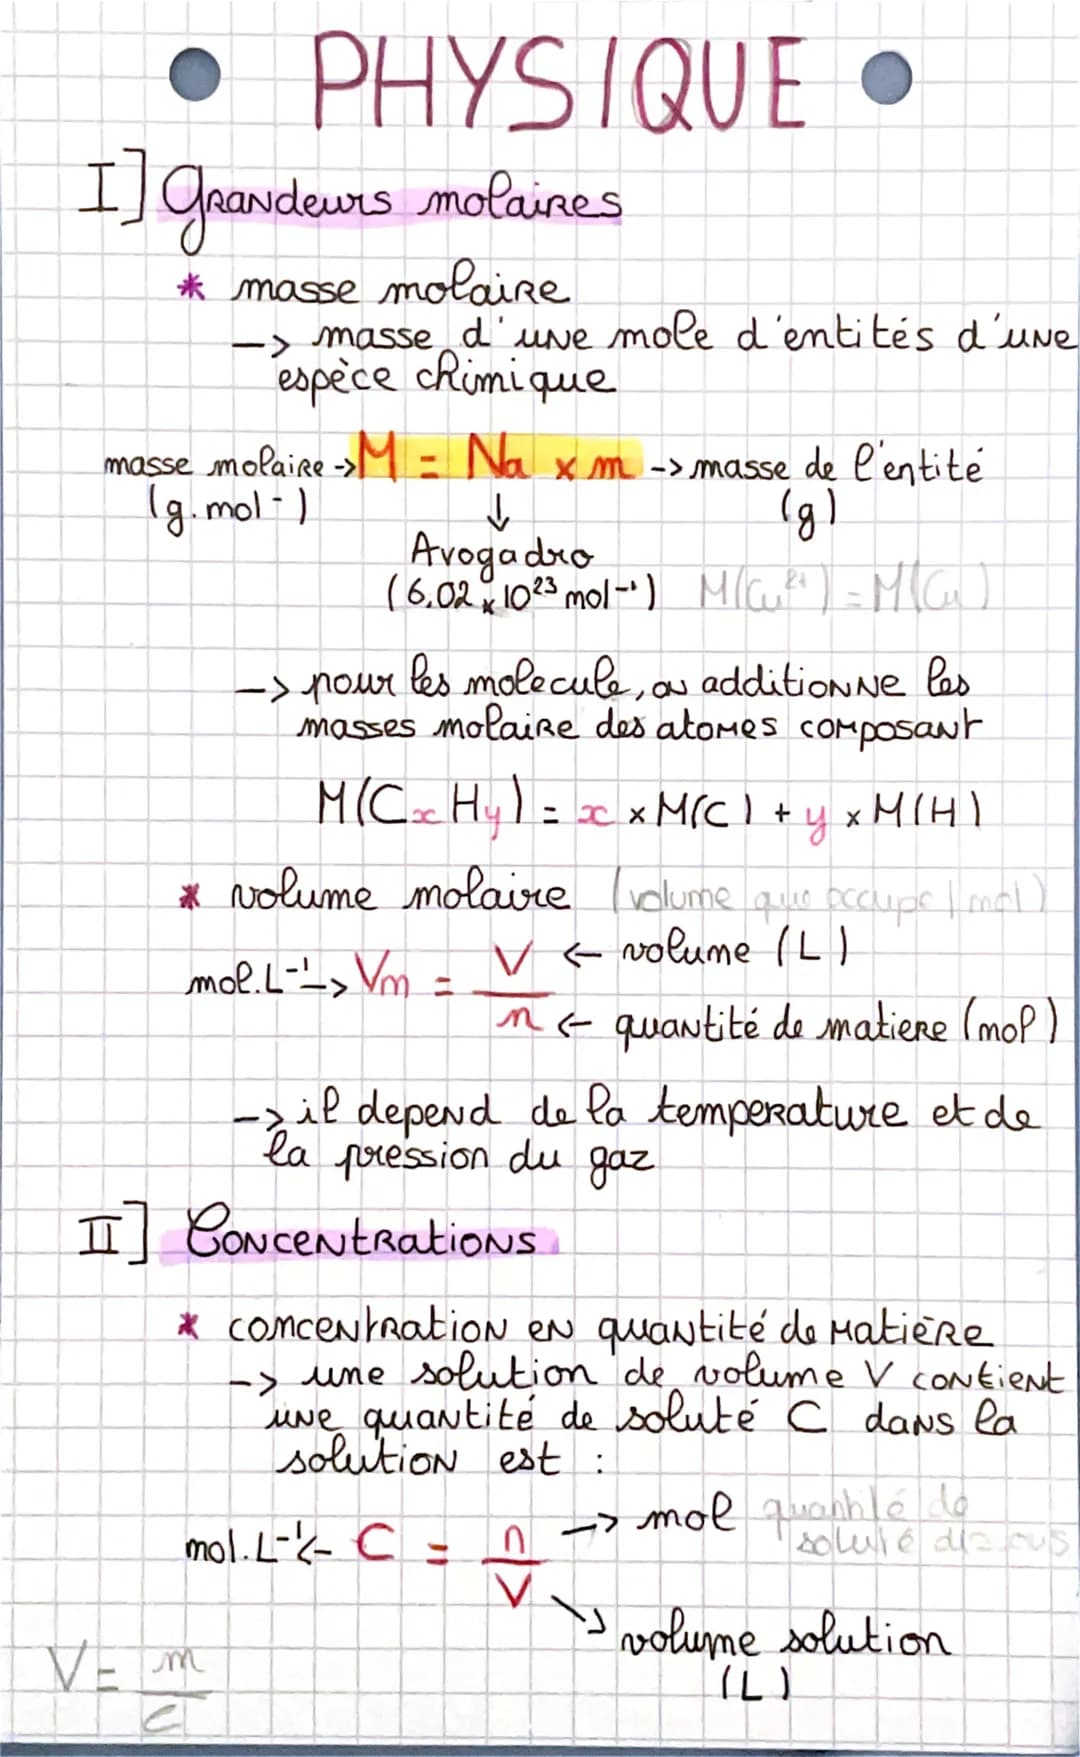 • PHYSIQUE •
I] Grandeurs molaires
* masse molaire
-> masse d'une mole d'entités d'une
espèce chimique
masse molaire -> M = Na x m -> masse de l'entité
(g.mol⁻) ↓ (g)
Avogadro
(6,02 x 10²³ mol⁻¹) M(Cu²⁺) = M(Cu)
-> pour les molecule, on additionne les
masses molaire des atomes composant
M(CxHy) = x × M(C) + y × M(H)
* volume molaire (volume que occupe 1 mol)
mol.L⁻¹ -> Vm = V/n ← volume (L)
← quantité de matiere (mol)
-> il depend de la temperature et de
la pression du gaz
II] Concentrations
* concentration en quantité de matière
-> une solution de volume V contient
une quantité de soluté C dans la
solution est :
mol.L⁻¹ <- C = n/V -> mol quantité de
soluté dissous
↘ volume solution
(L)
V = m/c